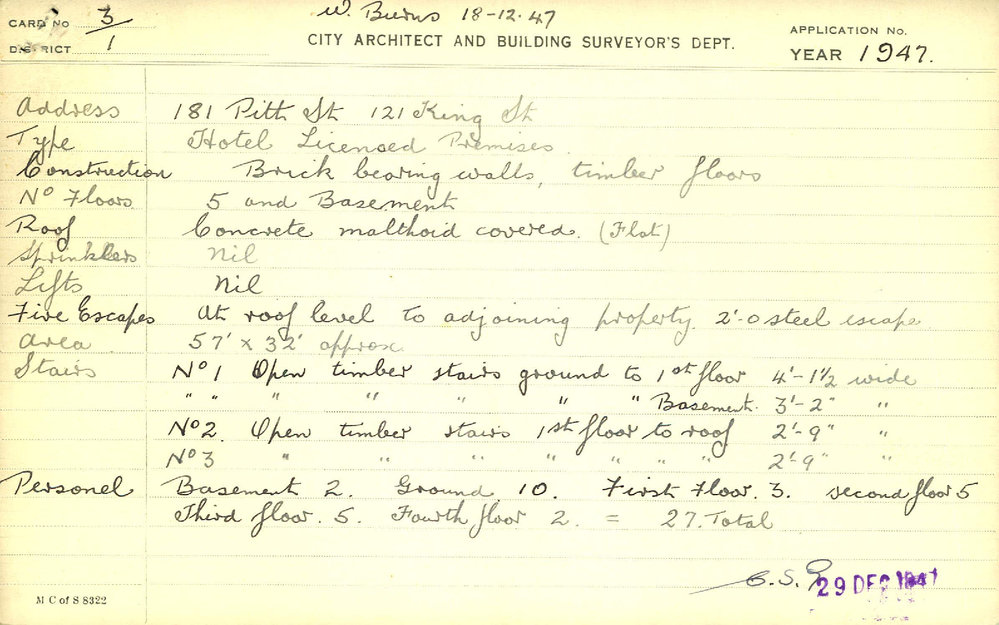 W. Burns 18-12.47
CARD No 3
DISTRICT 1
CITY ARCHITECT AND BUILDING SURVEYOR'S DEPT.
APPLICATION No.
YEAR 1947.
Address 181 Pitt St 121 King St
Type Hotel Licensed Premises.
Construction Brick bearing walls, timber floors
No Floors 5 and Basement
Roof Concrete malthoid covered. (Flat)
Sprinklers Nil
Lifts Nil
Fire Escapes At roof level to adjoining property. 2'-0 steel escape
Area 57' x 32' approx.
Stairs No 1 Open timber stairs ground to 1st floor 4'-1½ wide
" " " " " " " Basement. 3'-2" "
No 2. Open timber stairs 1st floor to roof 2'-9" "
No 3 " " " " " " " 2'-9" "
Personel Basement 2. Ground 10. First Floor. 3. second floor 5
Third floor. 5. Fourth floor 2. = 27. Total
C. S.
29 DEC 1947
M C of S 8322